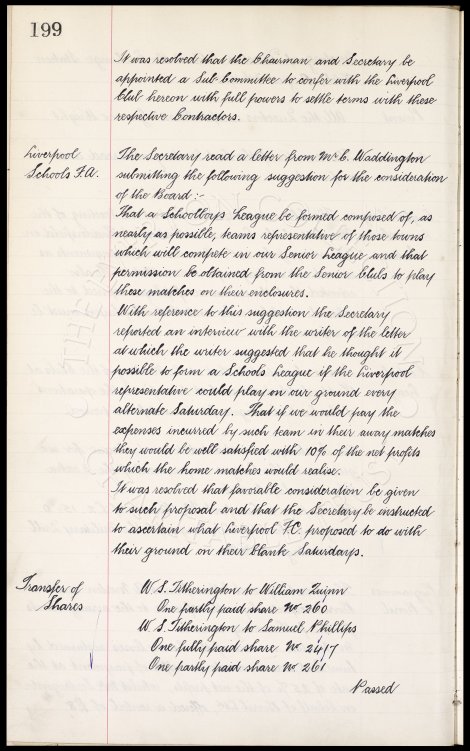 199
It was resolved that the Chairman and Secretary be
appointed a Sub-Committee to confer with the Liverpool
Club hereon with full powers to settle terms with these
respective Contractors.
Liverpool
Schools F.A.
The Secretary read a letter from Mr E. Waddington
submitting the following suggestion for the consideration
of the Board :-
That a Schoolboys League be formed composed of, as
nearly as possible, teams representative of those towns
which will compete in our Senior League and that
permission be obtained from the Senior Clubs to play
these matches on their enclosures.
With reference to this suggestion the Secretary
reported an interview with the writer of the letter
at which the writer suggested that he thought it
possible to form a Schools League if the Liverpool
representative could play on our ground every
alternate Saturday. That if we would pay the
expenses incurred by such team in their away matches
they would be well satisfied with 10% of the net profits
which the home matches would realise.
It was resolved that favorable consideration be given
to such proposal and that the Secretary be instructed
to ascertain what Liverpool F.C. proposed to do with
their ground on their blank Saturdays.
Transfer of
Shares
W. S. Titherington to William Quinn
One partly paid share No. 260
W. S. Titherington to Samuel Phillips
One fully paid share No. 2417
One partly paid share No. 261
Passed